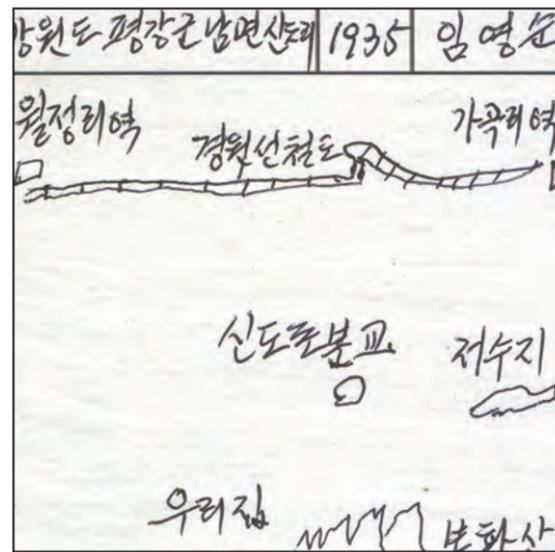 강원도 평강군 남면 신도리 1935 임영순
월정리역 경원선철도 가곡리역
신도로분교 저수지
우리집